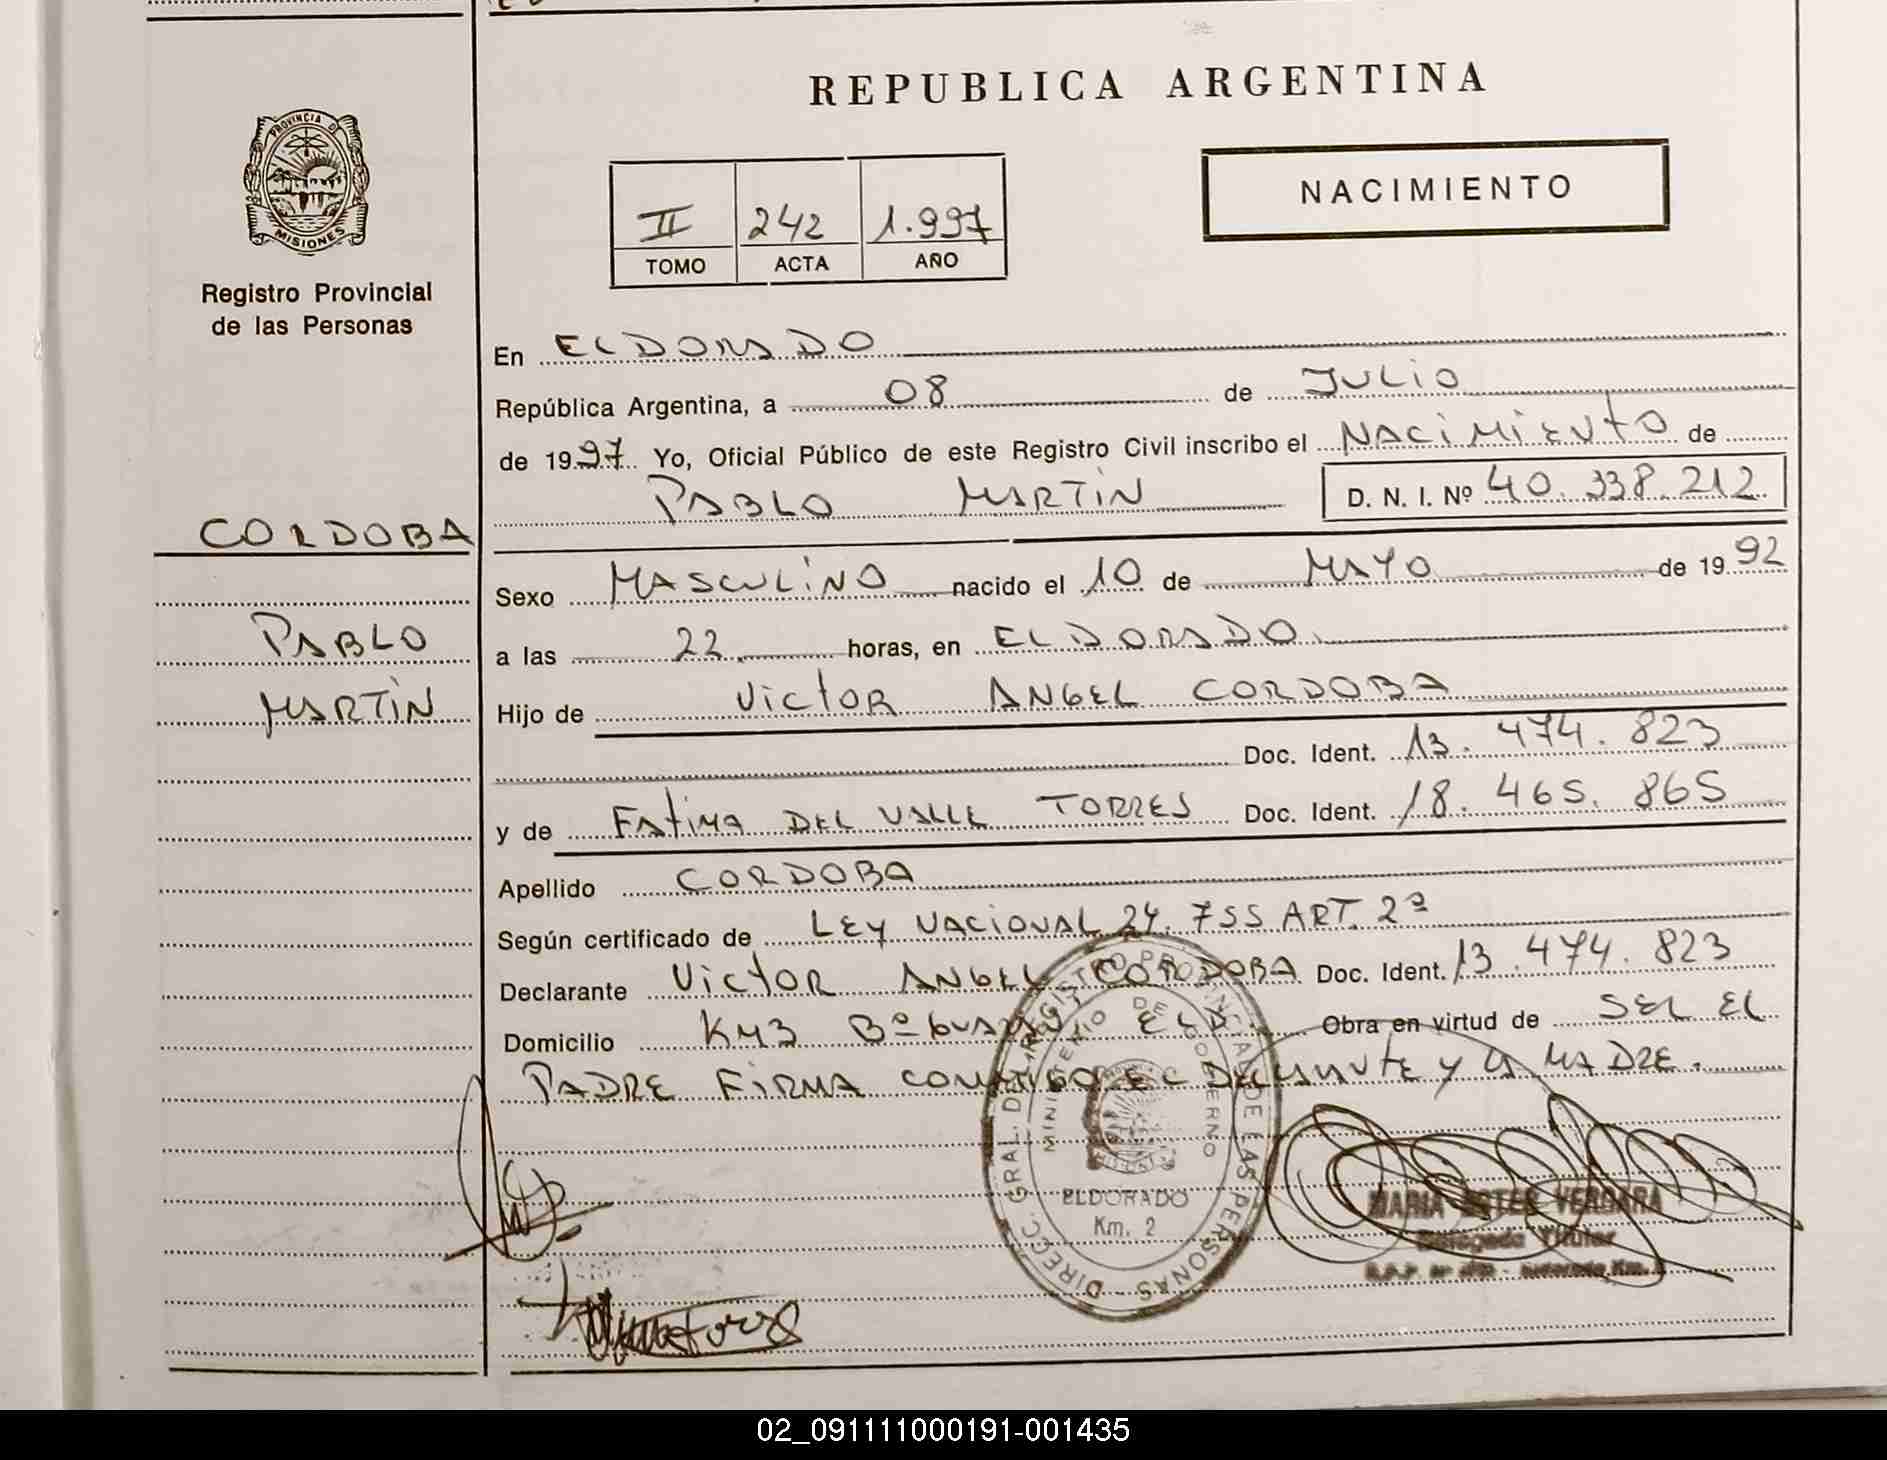 REPUBLICA ARGENTINA
PROVINCIA DE
MISIONES
Registro Provincial
de las Personas
NACIMIENTO
II 242 1.997
TOMO ACTA AÑO
En ELDORADO
República Argentina, a 08 de JULIO
de 1997 Yo, Oficial Público de este Registro Civil inscribo el NACIMIENTO de
PABLO MARTIN D. N. I. Nº 40.338.212
CORDOBA
Sexo MASCULINO nacido el 10 de MAYO de 1992
PABLO
a las 22 horas, en ELDORADO
MARTIN
Hijo de VICTOR ANGEL CORDOBA
Doc. Ident. 13.474.823
y de FATIMA DEL VALLE TORRES Doc. Ident. 18.465.865
Apellido CORDOBA
Según certificado de LEY NACIONAL 24.755 ART. 2º
Declarante VICTOR ANGEL CORDOBA Doc. Ident. 13.474.823
Domicilio KM3 Bº Obra en virtud de SER EL
PADRE FIRMA CONMIGO EL DECLARANTE Y LA MADRE.
DIRECC. GRAL. DEL REGISTRO PROVINCIAL DE LAS PERSONAS
MINISTERIO DE GOBIERNO
ELDORADO
Km. 2
MARIA ESTER VERGARA
Delegada Titular
02_091111000191-001435